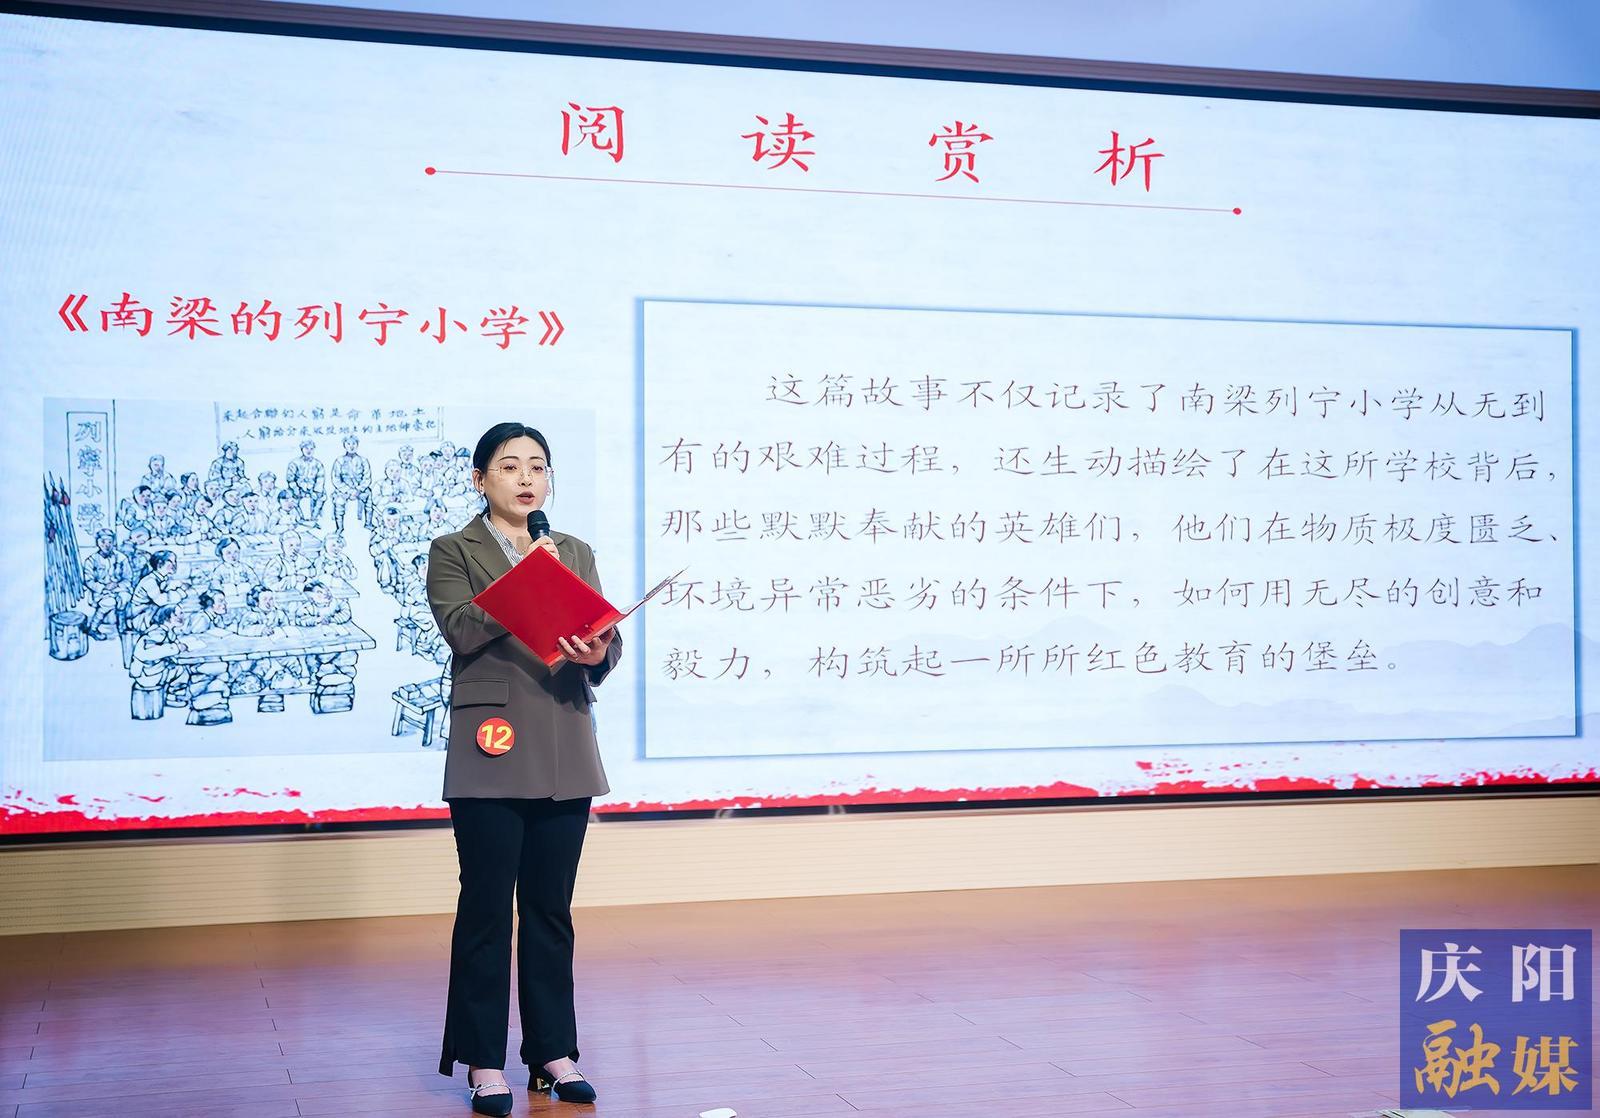 阅读赏析
《南梁的列宁小学》
这篇故事不仅记录了南梁列宁小学从无到
有的艰难过程，还生动描绘了在这所学校背后，
那些默默奉献的英雄们，他们在物质极度匮乏、
环境异常恶劣的条件下，如何用无尽的创意和
毅力，构筑起一所所红色教育的堡垒。
来起合聯们人窮是命革地土
列寧小學
12
庆阳
融媒